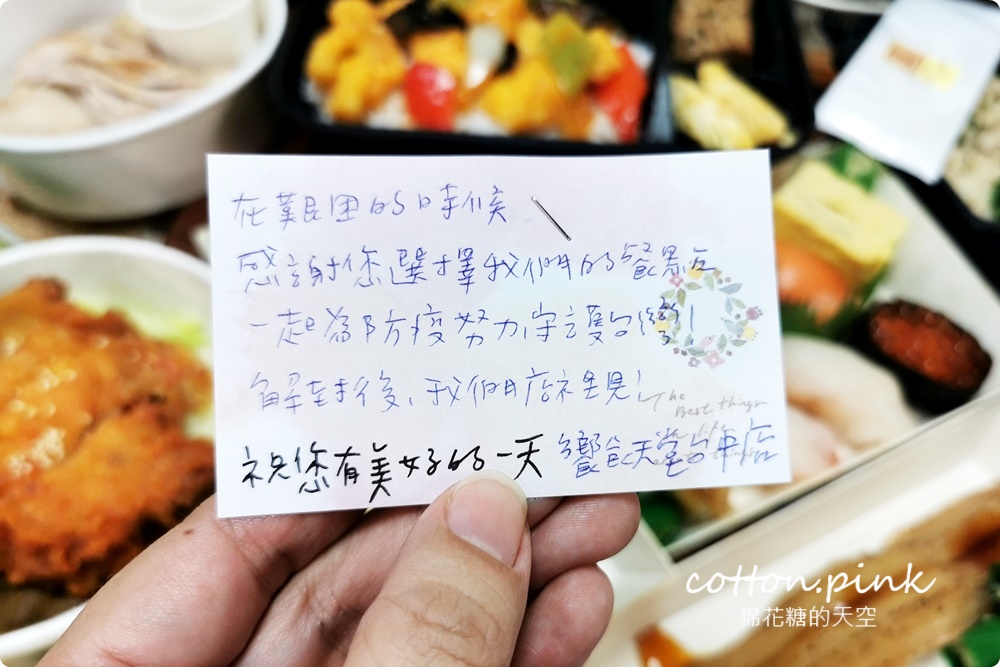 在艱困的時候
感謝您選擇我們的餐點
一起為防疫努力,守護台灣!
解封後、我們店裡見!
The
Best things
祝您有美好的一天 饗食天堂台中店
cotton.pink
棉花糖的天空